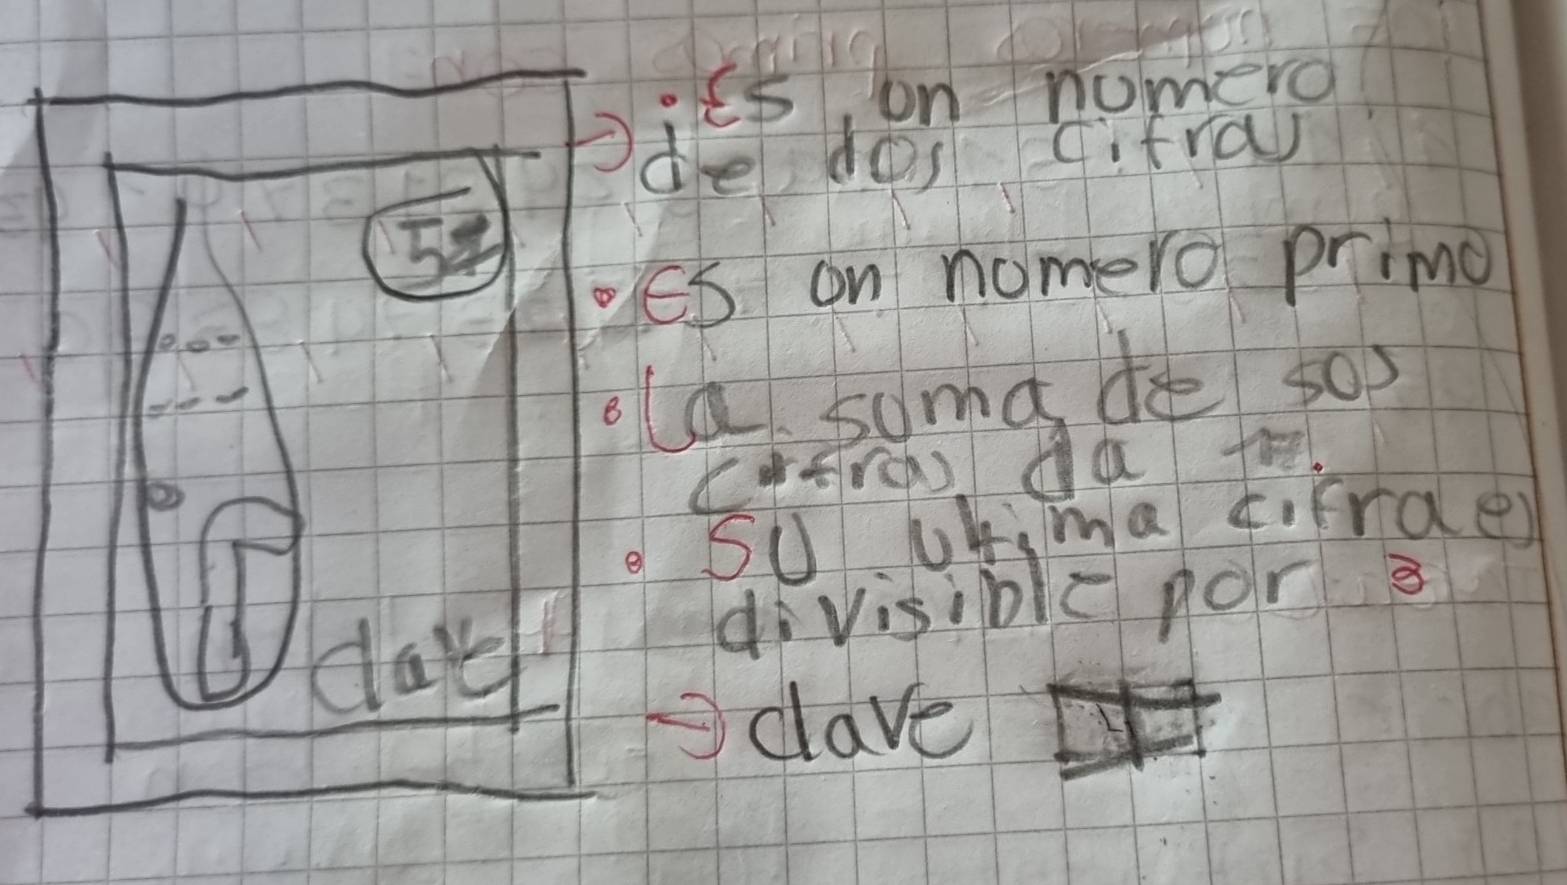 • Es un numero
de dos cifras
• Es un numero primo
• La suma de sus
cifras da
• Su ultima cifra es
divisible por
clave
→ clave